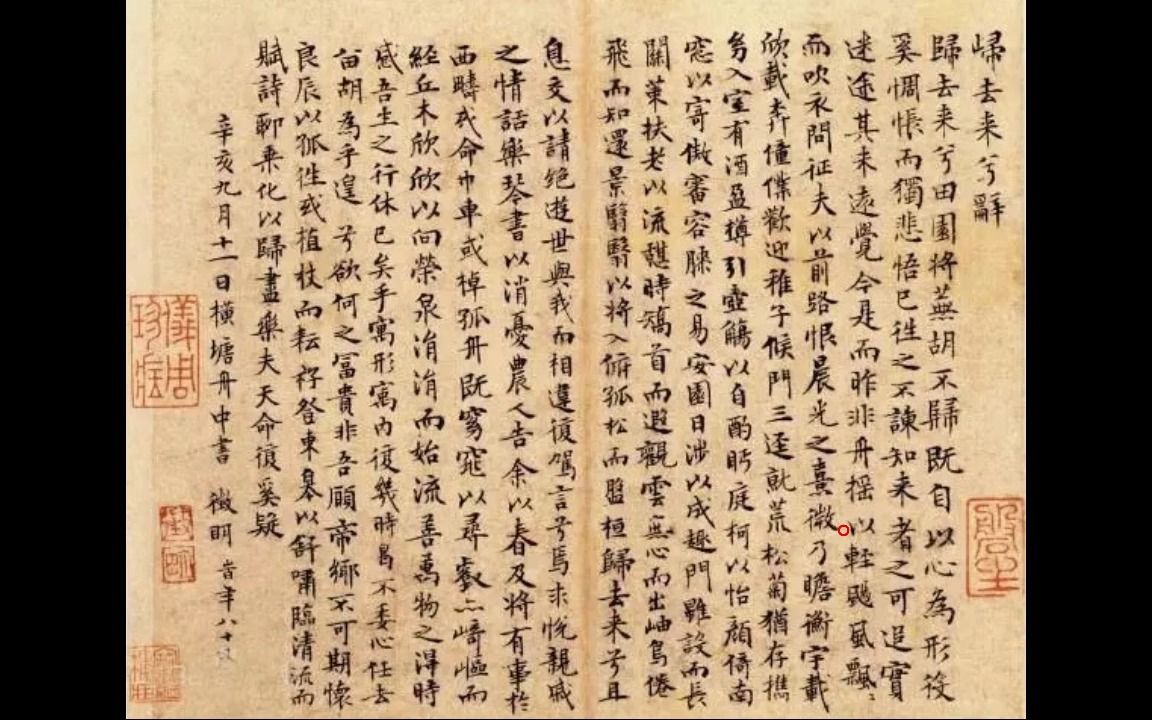 歸去来兮辭
歸去来兮田園将蕪胡不歸既自以心為形役
奚惆悵而獨悲悟已往之不諫知来者之可追實
迷途其未遠覺今是而昨非舟摇以輕颺風飄〻
而吹衣問征夫以前路恨晨光之熹微乃瞻衡宇載
欣載奔僮僕歡迎稚子候門三逕就荒松菊猶存攜
幼入室有酒盈樽引壺觴以自酌眄庭柯以怡顔倚南
窓以寄傲審容膝之易安園日渉以成趣門雖設而長
關策扶老以流憩時矯首而遐觀雲無心而出岫鳥倦
飛而知還景翳翳以将入俯孤松而盤桓歸去来兮且
息交以請絶遊世與我而相違復駕言兮焉求悅親戚
之情話樂琴書以消憂農人告余以春及将有事於
西疇或命巾車或棹孤舟既窈窕以尋壑亦崎嶇而
經丘木欣欣以向榮泉涓涓而始流善萬物之得時
感吾生之行休已矣乎寓形寓内復幾時曷不委心任去
留胡為乎遑兮欲何之富貴非吾願帝鄉不可期懷
良辰以孤往或植杖而耘耔登東皋以舒嘯臨清流而
賦詩聊乘化以歸盡樂夫天命復奚疑
辛亥九月十一日橫塘舟中書 徵明 旹年八十又